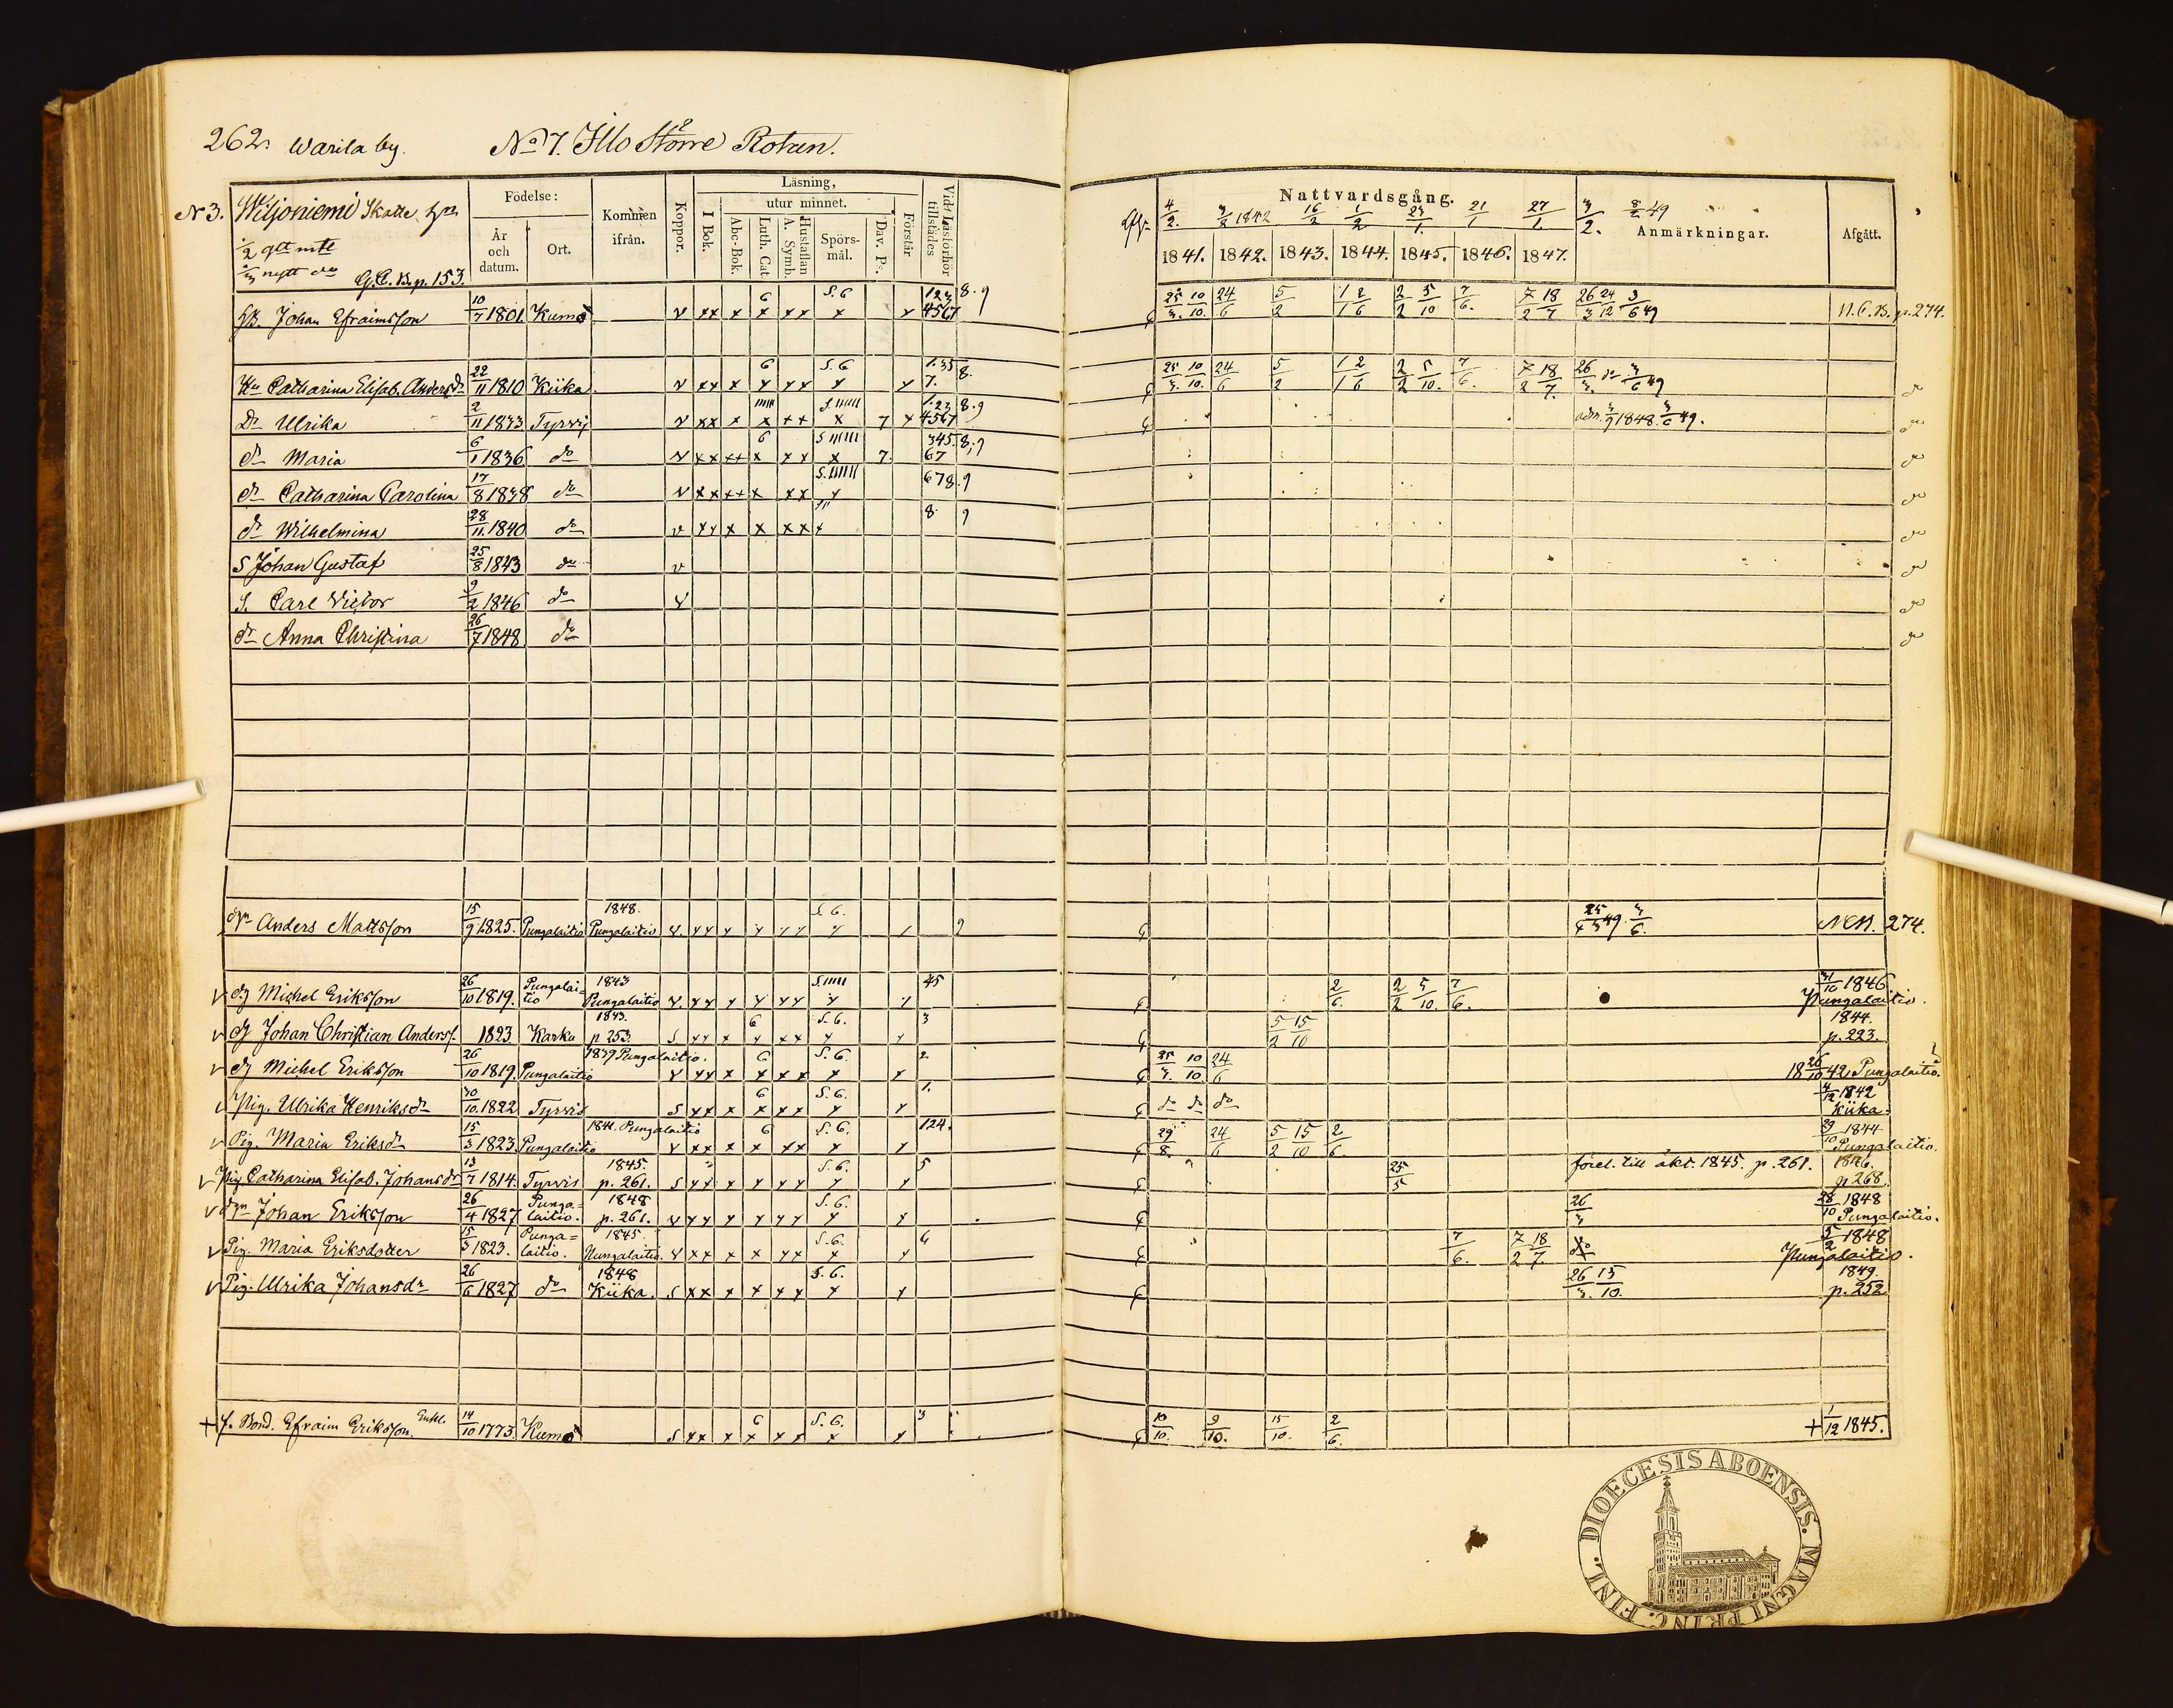 262. Warila by. No 7. Illo Större Rotan.
N 3. Wiljoniemi Skatte hn
1/2 gllt mtl
nytt do G.C.B. p. 153.
Födelse: År och datum. Ort.
Kommen ifrån.
Koppor.
Läsning, I Bok. utur minnet. Abc-Bok. Luth. Cat. A. Symb. Hustaflan Spörsmål. Dav. Ps. Förstår
Vid Läsförhör tillstädes
Nattvardsgång.
4/2. 3/2 1842 16/2 1/2 23/1. 21/1 27/1. 3/2. 8/2 49
1841. 1842. 1843. 1844. 1845. 1846. 1847. Anmärkningar. Afgått.
Johan Efraimsson 10/7 1801 Kumo v xx x 6 x xx S.6 x x 123 4567 8.9 25/3. 10/10. 24/6 5/2 1/1 2/6 2/2 5/10 7/6. 7/2 18/7 26/3 24/12 3/6 49 N.C.B. p. 274.
Hu Catharina Elisab. Andersdr 22/11 1810 Kiika v xx x 6 x xx S.6 x x 1.35 7. 8. 25/3. 10/10. 24/6 5/2 1/1 2/6 2/2 5/10. 7/6. 7/2 18/7. 26/3. do 3/6 49 do
Dr Ulrika 2/11 1833 Tyrvis v xx x x xx S. x 7 x 1.23 4567 8.9 adm. 3/9 1848. 3/6 49. do
dr Maria 6/1 1836 do v xx xx 6 x xx S x 7. 345. 67 8.9 do
dr Catharina Carolina 17/8 1838 do v xx xx x xx S. x 678.9 do
dr Wilhelmina 28/11. 1840 do v xx x x xx x 8. 9 do
S Johan Gustaf 25/8 1843 do v do
S. Carl Victor 9/2 1846 do v do
dr Anna Christina 26/7 1848 do do
Anders Mattsson 15/9 1825. Pungalaitio 1848. Pungalaitio v. xx x x xx S.6. x x 9 25/3 49. 3/6. NCB. 274.
v dg Michel Eriksson 26/10 1819. Pungalaitio 1843 Pungalaitio v. xx x x xx S. x x 45 2/6. 2/2 5/10. 7/6. 31/10 1846 Pungalaitio.
v dg Johan Christian Anderss. 1823 Karku 1843. p 253. S xx x 6 x xx S.6. x x 3 5/2 15/10 1844. p. 223.
v dg Michel Eriksson 26/10 1819. Pungalaitio 1839 Pungalaitio. v xx x 6 x xx S.6. x x 2. 25/3. 10/10. 24/6 18 26/10 42 Pungalaitio.
v Pig. Ulrika Henriksdr 30/10. 1822 Tyrvis S xx x 6 x xx S.6. x x 1. do do do 1842 Kiika.
v Pig. Maria Eriksdr 15/3 1823. Pungalaitio 1841. Pungalaitio v xx x 6 x xx S.6. x x 124. 29/8. 24/6 5/2 15/10 2/6. 29/10 1844 Pungalaitio.
v Pig Catharina Elisab. Johansdr 13/7 1814. Tyrvis 1845. p. 261. S xx x x xx S.6. x x 5 25/5 förel. till äkt. 1845. p. 261. 1846. p 268
v Johan Eriksson 26/4 1827 Pungalaitio. 1848 p. 261. v xx x x xx S.6. x x 26/3 28/10 1848 Pungalaitio.
v Pig. Maria Eriksdotter 15/3 1823. Pungalaitio. 1845. Pungalaitio. v xx x x xx S.6. x x 6 7/6. 7/2 18/7. do 5/2 1848 Pungalaitio.
v Pig. Ulrika Johansdr 26/6 1827 do 1848 Kiika. S xx x x xx S.6. x x 26/3. 15/10. 1849. p. 252
+ f. Bond. Efraim Eriksson. Enkl. 14/10 1773. Kumo S xx x 6 x xx S.6. x x 3 10/10. 9/10. 15/10. 2/6. + 1/12 1845.
DIOECESIS ABOENSIS. MAGNI PRINC. FINL.